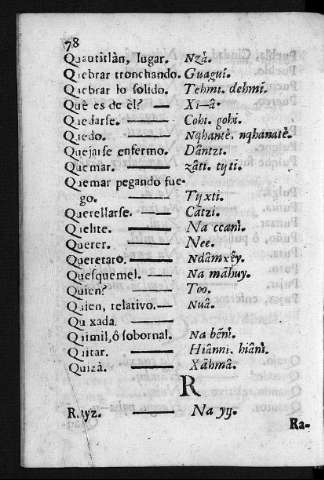 78
Quautitlàn, lugar. Nzà.
Quebrar tronchando. Guaguí.
Quebrar lo solido. Tehmi. dehmi.
Què es de èl? — Xi—â.
Quedarse. — Cohi. gohi.
Quedo. — Nqhantè. nqhanatè.
Quejarse enfermo. Dântzi.
Quemar. — zâti. tyti.
Quemar pegando fue-
go. — Tyxti.
Querellarse. — Câtzi.
Quelite. — Na ccanì.
Querer. — Nee.
Queretaro. — Ndâmxêy.
Quesquemel. — Na mâhuy.
Quien? — Too.
Quien, relativo. — Nuâ.
Qu xada. —
Quimil, ó sobornal. Na bẽnì.
Quitar. — Hiânni. hianì.
Quizà. — Xâhmâ.
R
Rayz. — Na yỹ.
Ra-